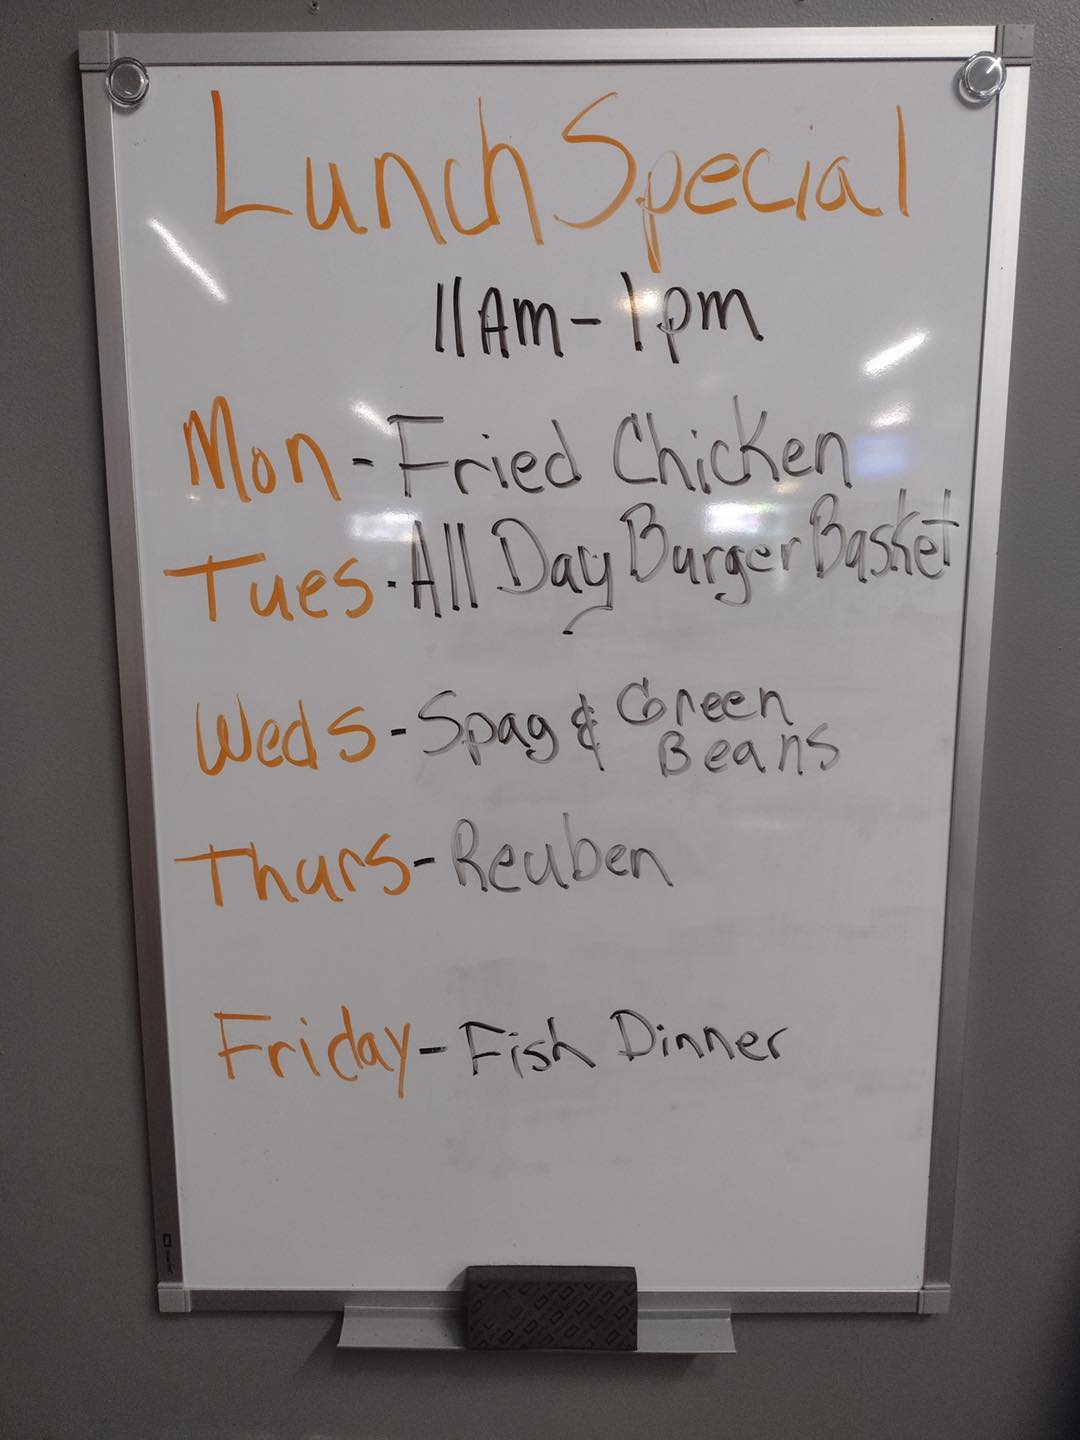 Lunch Special
11Am-1pm
Mon-Fried Chicken
Tues-All Day Burger Basket
Weds-Spag & Green
Beans
Thurs-Reuben
Friday-Fish Dinner